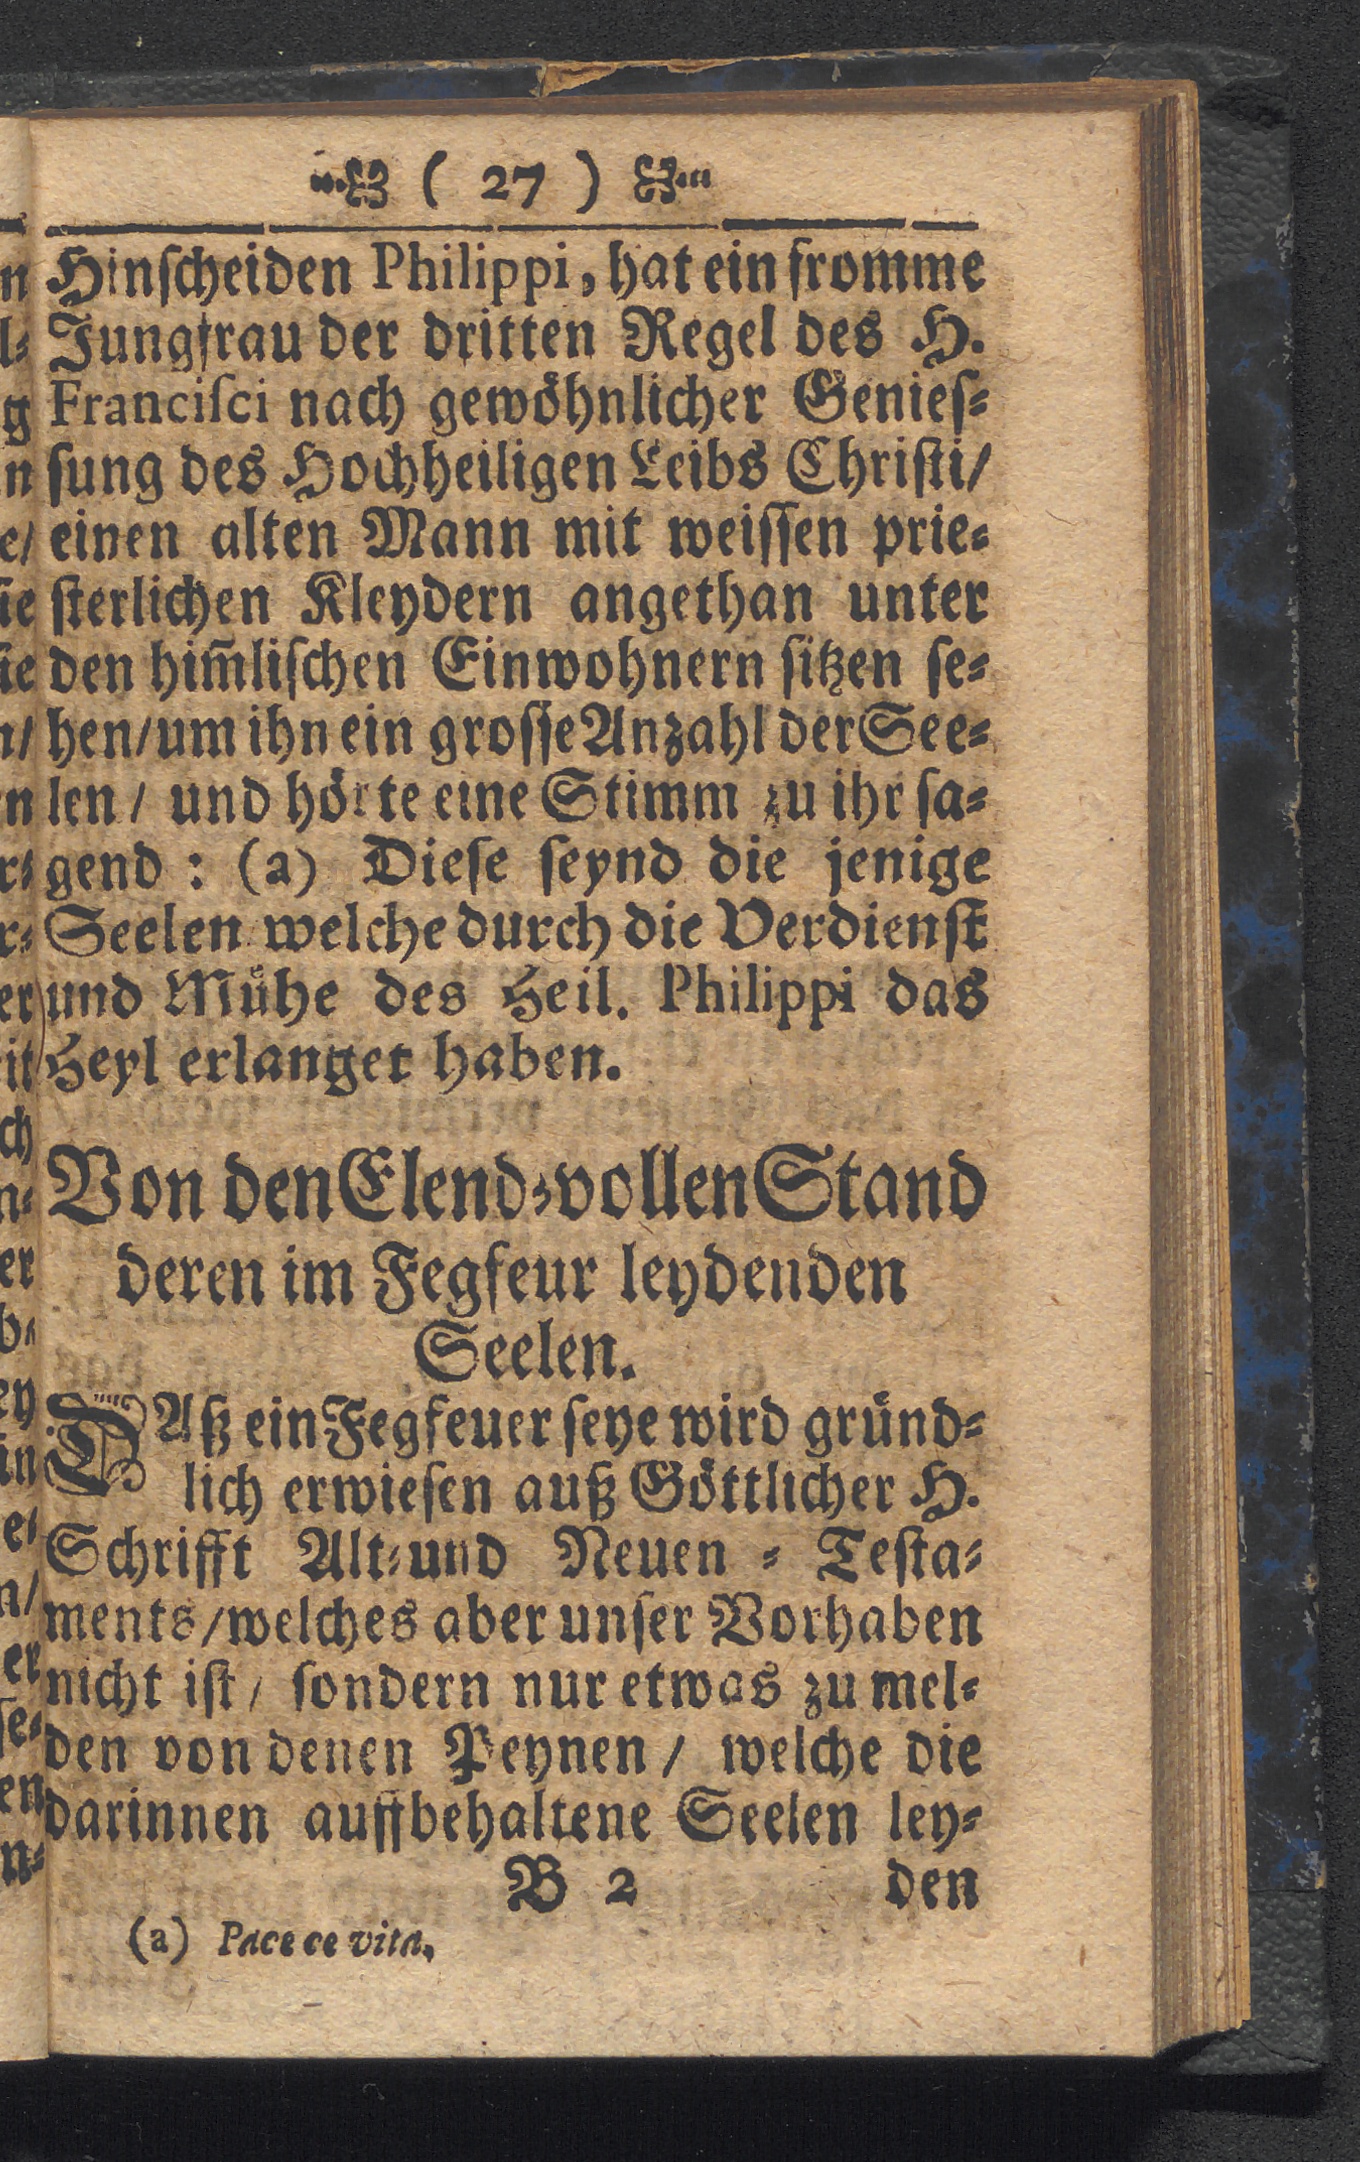 ( 27 )
Hinſcheiden Philippi, hat ein fromme
Jungfrau der dritten Regel des H.
Franciſci nach gewöhnlicher Genieſ⸗
ſung des Hochheiligen Leibs Chriſti/
einen alten Mann mit weiſſen prie⸗
ſterlichen Kleydern angethan unter
den him̃liſchen Einwohnern ſitzen ſe⸗
hen/ um ihn ein groſſe Anzahl der See⸗
len / und hörte eine Stimm zu ihr ſa⸗
gend : (a) Dieſe ſeynd die jenige
Seelen welche durch die Verdienſt
und Mühe des Heil. Philippi das
Heyl erlanget haben.
Von den Elend⸗vollen Stand
deren im Fegfeur leydenden
Seelen.
DAß ein Fegfeuer ſeye wird gründ⸗
lich erwieſen auß Göttlicher H.
Schrifft Alt⸗und Neuen ⸗ Teſta⸗
ments/welches aber unſer Vorhaben
nicht iſt / ſondern nur etwas zu mel⸗
den von denen Peynen / welche die
darinnen auffbehaltene Seelen ley⸗
B 2 den
(a) vita.